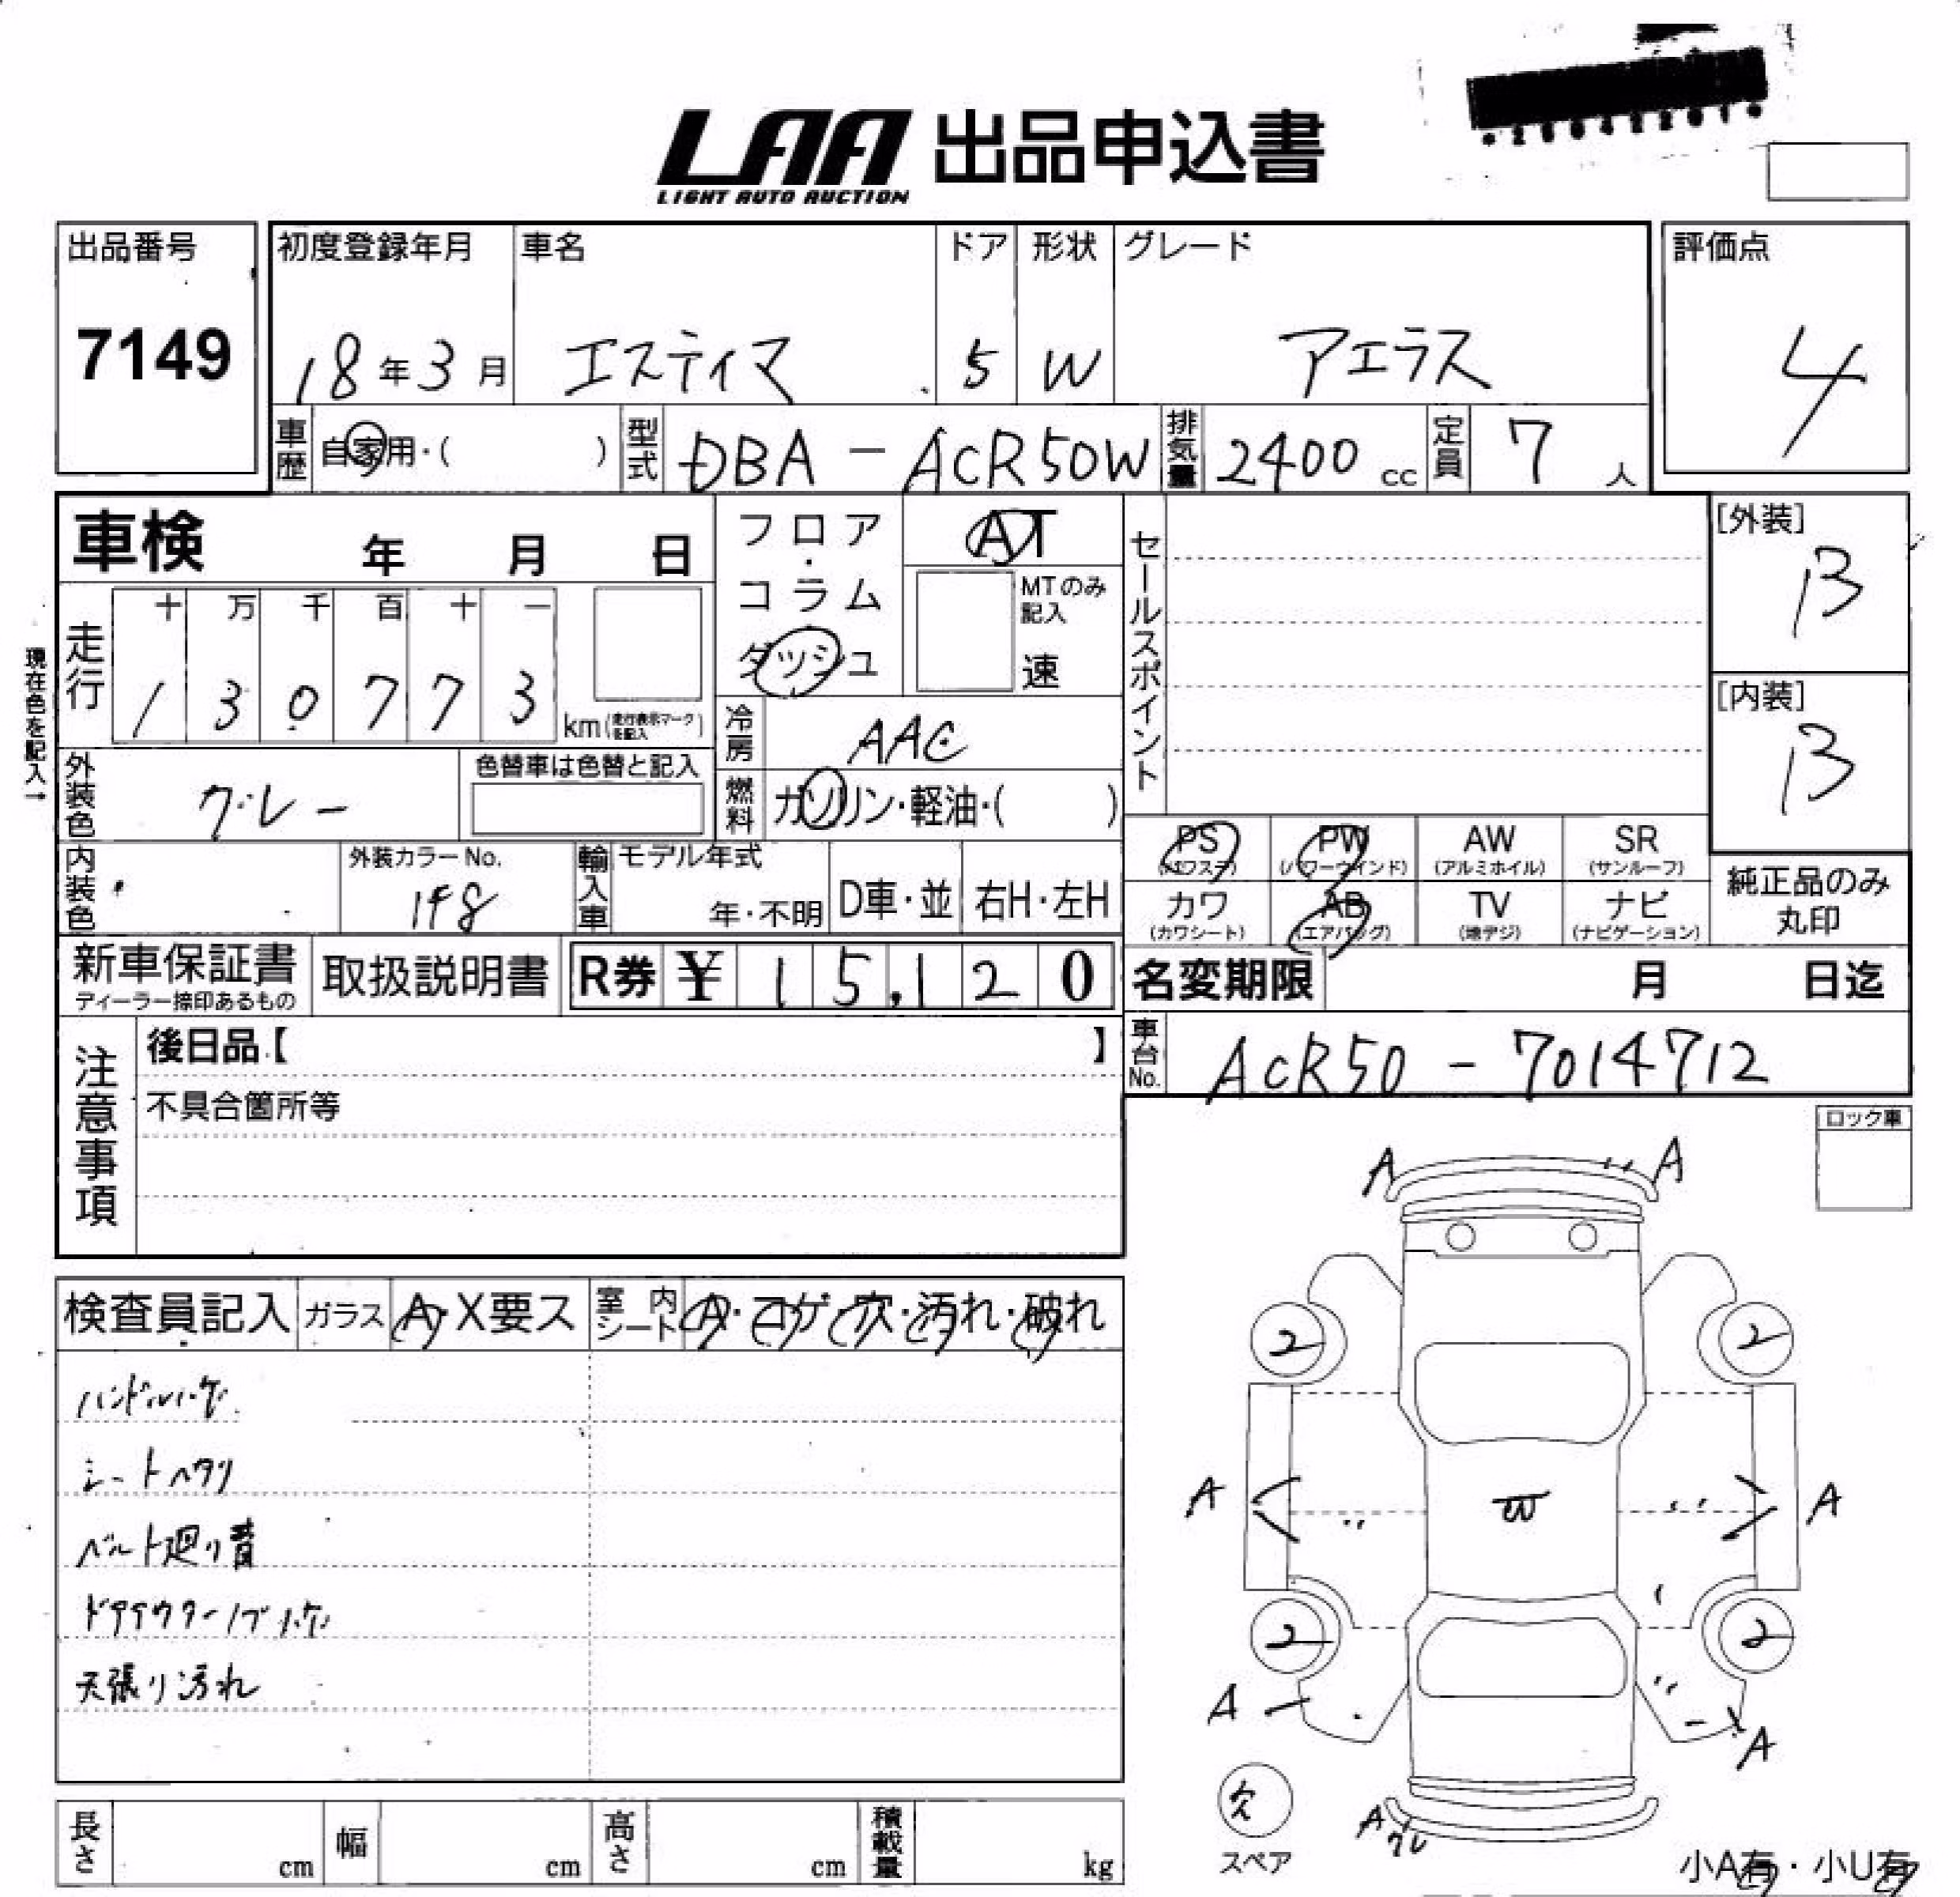 LAA 出品申込書
LIGHT AUTO AUCTION
出品番号
7149
初度登録年月
18年3月
車名
エスティマ
ドア
5
形状
W
グレード
アエラス
評価点
4
車歴
自家用・( )
型式
DBA-ACR50W
排気量
2400 cc
定員
7人
車検 年 月 日
フロア・コラム
ダッシュ
AT
MTのみ記入
速
セールスポイント
[外装]
B
[内装]
B
現在色を記入→
走行
十 万 千 百 十 一
1 3 0 7 7 3
km(走行表示マークを記入)
冷房
AAC
燃料
ガソリン・軽油・( )
外装色
グレー
色替車は色替と記入
内装色
外装カラーNo.
1F8
輸入車
モデル年式
年・不明
D車・並
右H・左H
PS
(パワステ)
PW
(パワーウインド)
AW
(アルミホイル)
SR
(サンルーフ)
カワ
(カワシート)
AB
(エアバッグ)
TV
(地デジ)
ナビ
(ナビゲーション)
純正品のみ
丸印
新車保証書
ディーラー捺印あるもの
取扱説明書
R券 ¥ 15,120
名変期限 月 日迄
車台No.
ACR50-7014712
注意事項
後日品【 】
不具合箇所等
ロック車
検査員記入
ガラス
A・X要ス
室内シート
A・コゲ・穴・汚れ・破れ
ハンドルハゲ
シートヘタリ
ベルト廻り音
ドアアウターノブハゲ
天張り汚れ
A A
2 2
A A
W
2 2
A A
欠
スペア
A グレ
小A有・小U有
長さ cm
幅 cm
高さ cm
積載量 kg